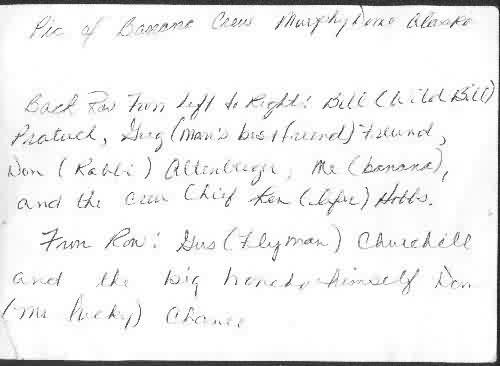 Pic of Banana Crew Murphy Dome Alaska
Back Row From Left to Right: Bill (Wild Bill)
Greg (Man's best friend) Freund,
Don (Rabbi) Altenberger, Me (banana),
and the crew Chief Ken Hobbs.
Fron Row: Gus (Flyman) Churchill
and the big honcho himself Don
(Mr Pucky) Chance